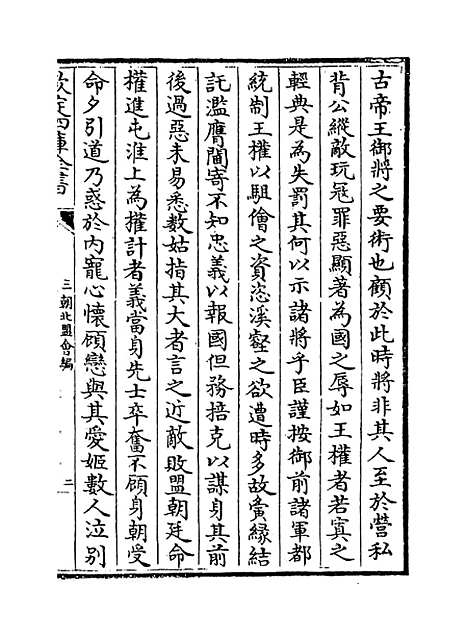 古帝王御將之要術也顧於此時將非其人至於營私
背公縱敵玩冦罪惡顯著為國之辱如王權者若寘之
輕典是為失罰其何以示諸將乎臣謹按御前諸軍都
統制王權以駔儈之資恣溪壑之欲遭時多故夤緣結
託濫膺閫寄不知忠義以報國但務掊克以謀身其前
後過惡未易悉數姑指其大者言之近敵敗盟朝廷命
權進屯淮上為權計者義當身先士卒奮不顧身朝受
命夕引道乃惑於内寵心懷顧戀與其愛姬數人泣别
欽定四庫全書
三朝北盟會編
二